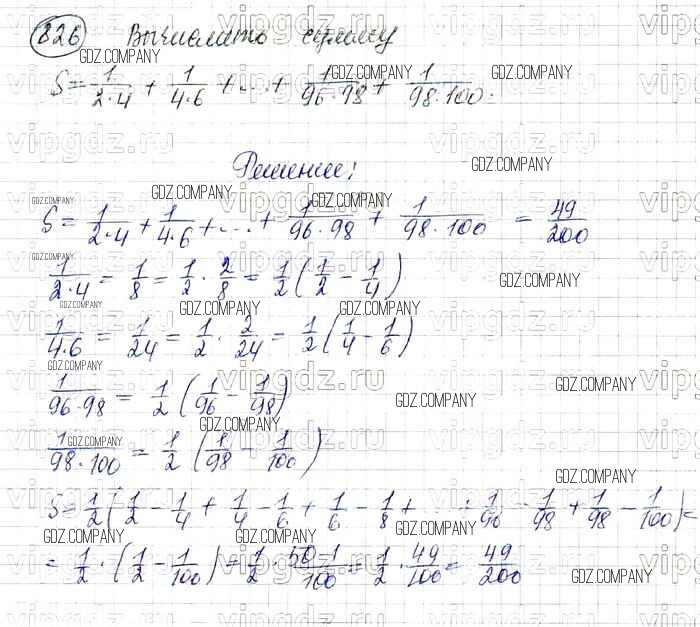 826 Вычислить сумму
S = 1/(2·4) + 1/(4·6) + ... + 1/(96·98) + 1/(98·100).
Решение:
S = 1/(2·4) + 1/(4·6) + ... + 1/(96·98) + 1/(98·100) = 49/200
1/(2·4) = 1/8 = 1/2 · 2/8 = 1/2 (1/2 - 1/4)
1/(4·6) = 1/24 = 1/2 · 2/24 = 1/2 (1/4 - 1/6)
1/(96·98) = 1/2 (1/96 - 1/98)
1/(98·100) = 1/2 (1/98 - 1/100)
S = 1/2 (1/2 - 1/4 + 1/4 - 1/6 + 1/6 - 1/8 + ... + 1/96 - 1/98 + 1/98 - 1/100) =
= 1/2 · (1/2 - 1/100) = 1/2 · (50-1)/100 = 1/2 · 49/100 = 49/200